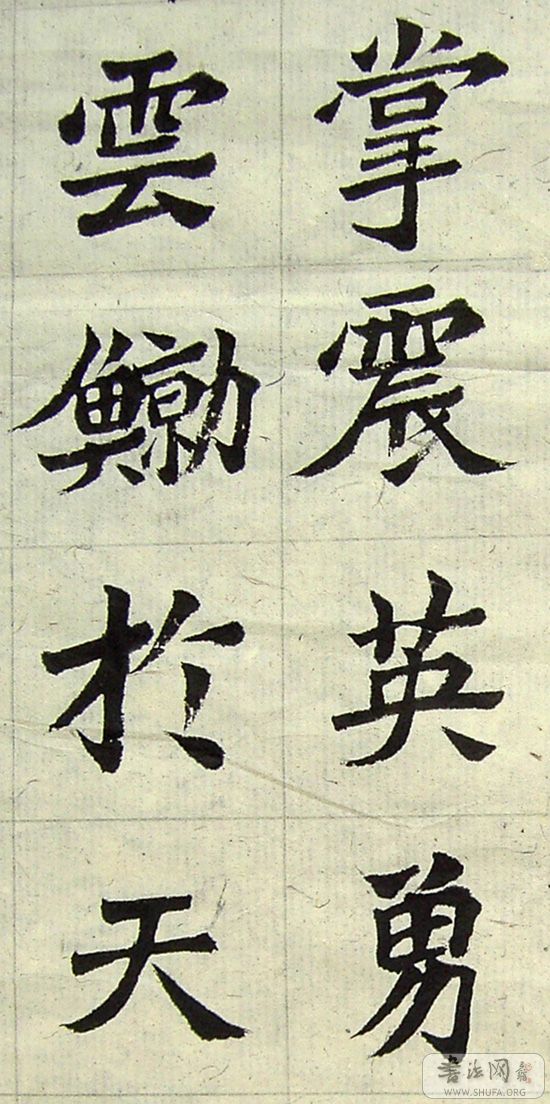 掌震英勇
雲於天
書法网
WWW.SHUFA.ORG